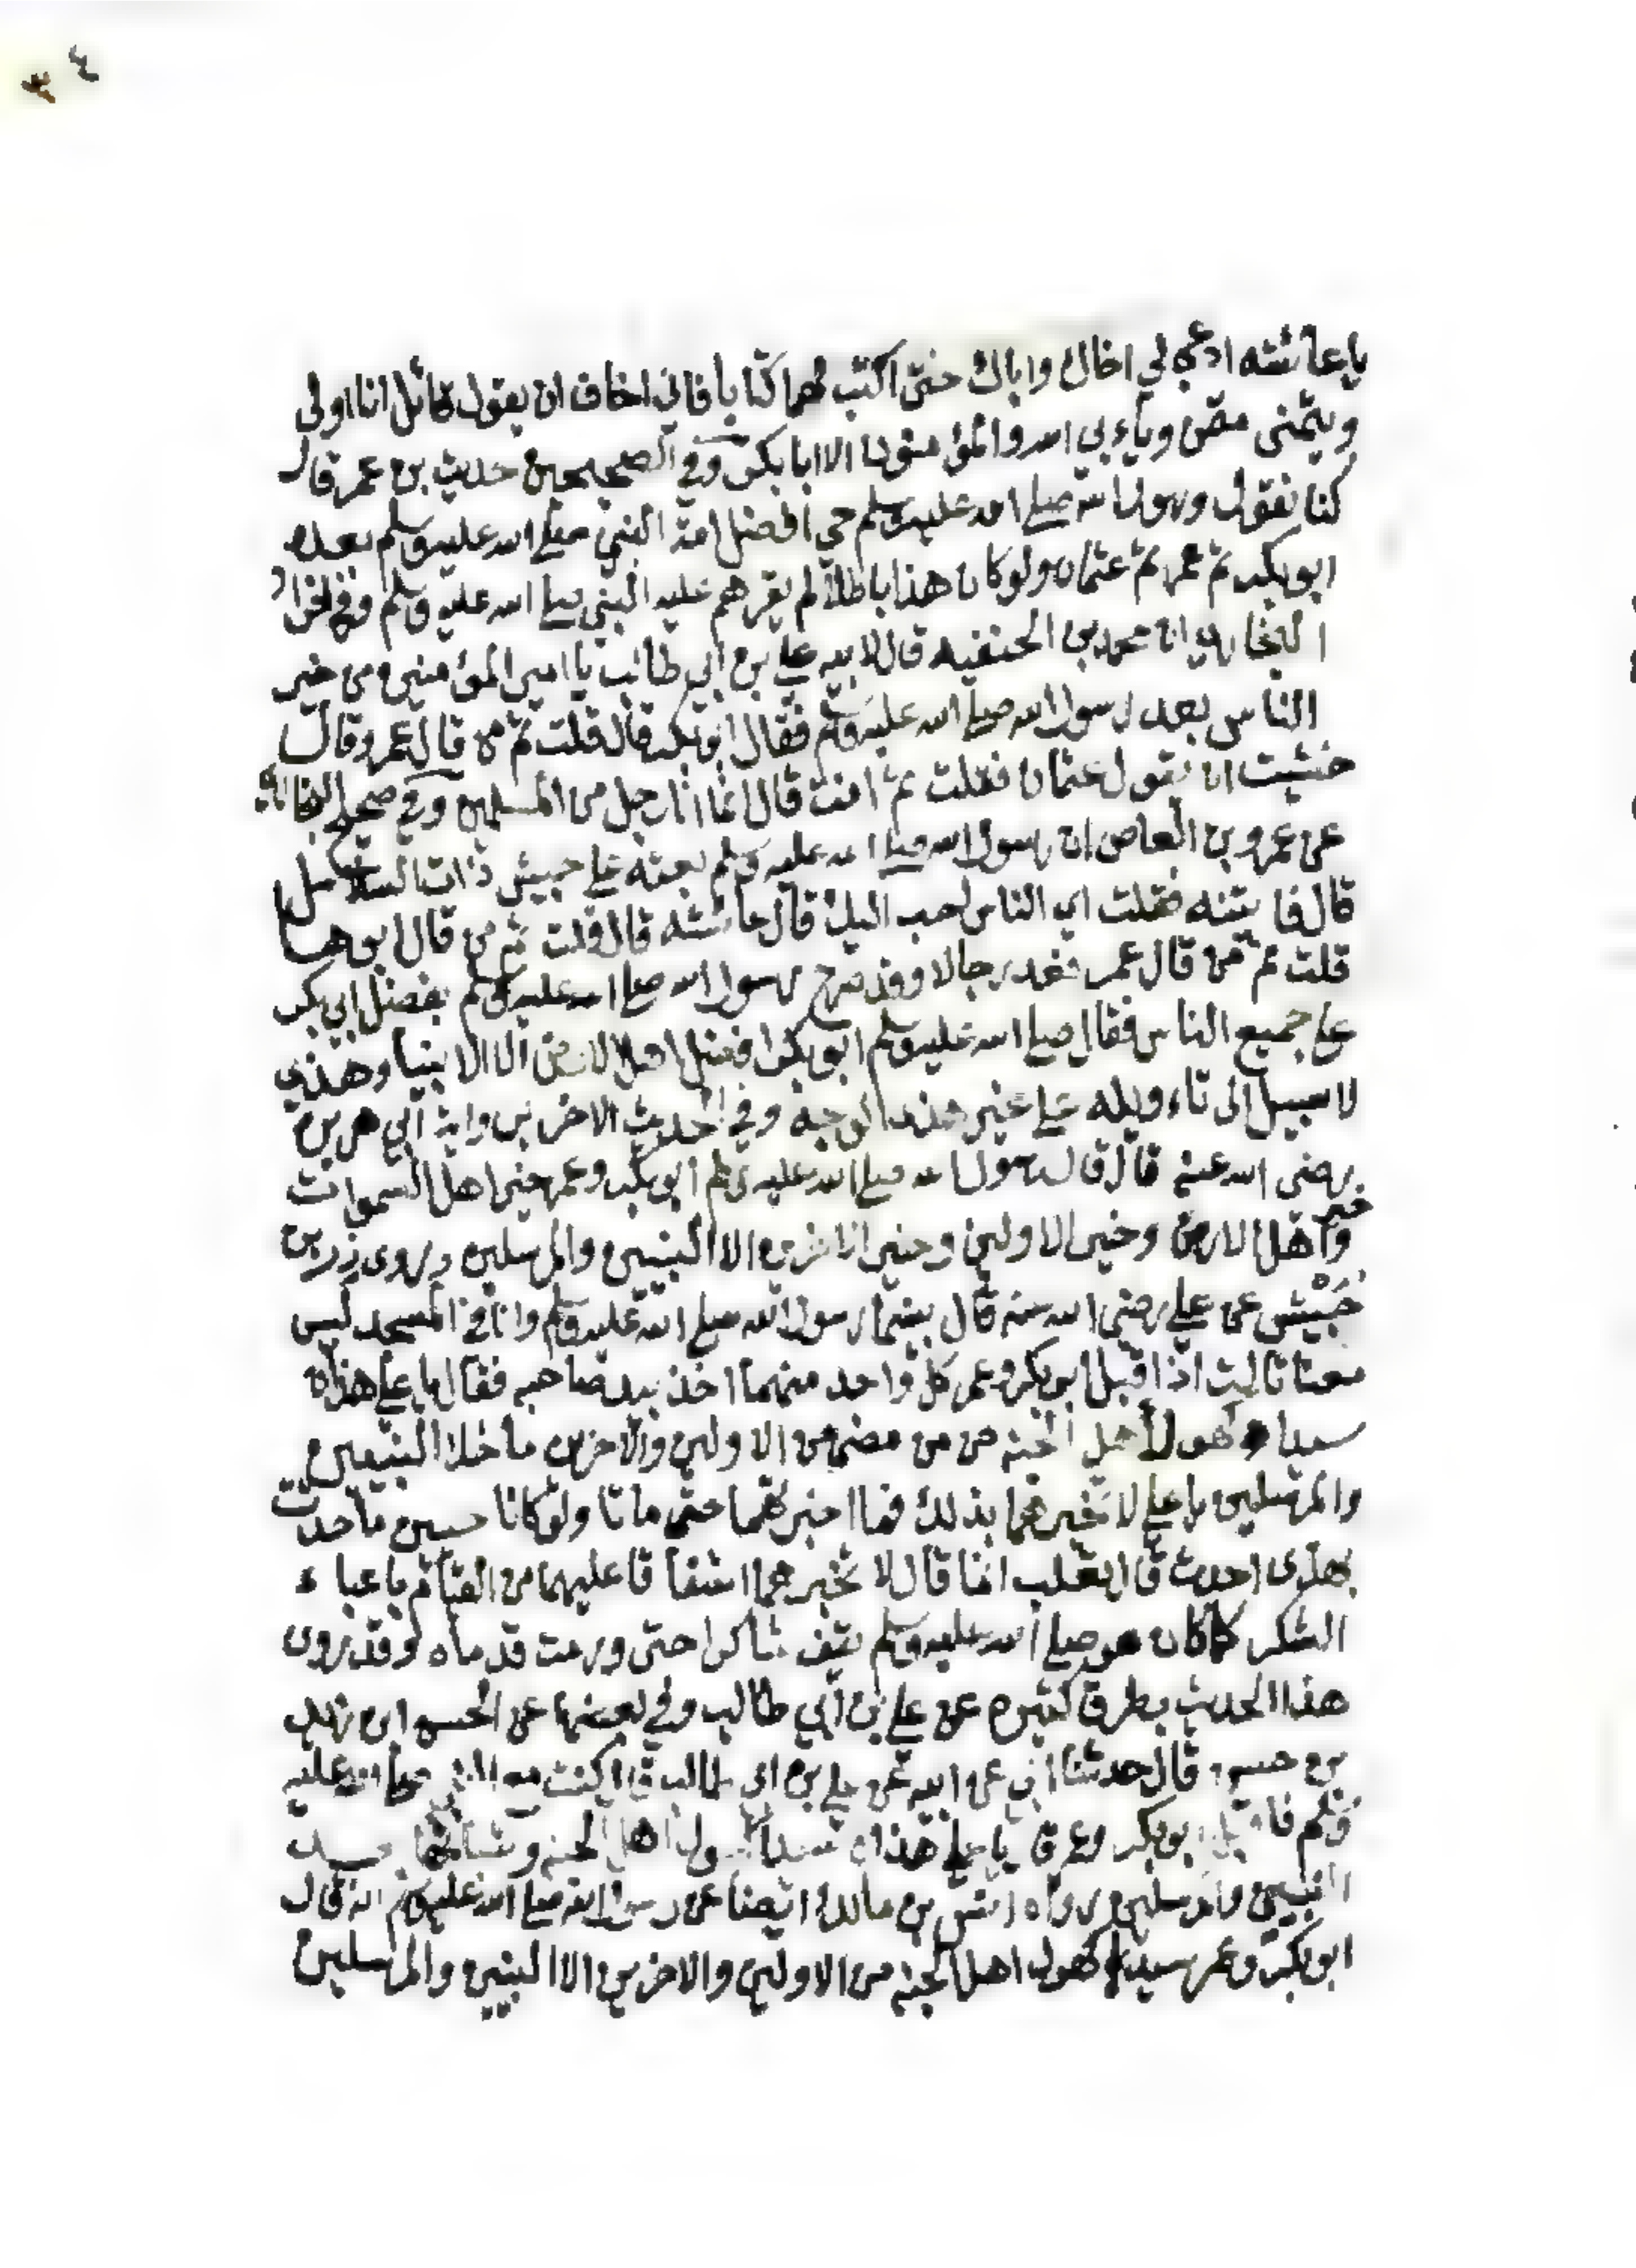 ٣ ٤
يا عائشه ادعي لي اخاك واباك حتى اكتب لهما كتابا فاني اخاف ان يقول قائل انا اولى
ويتمنى متمن وياءبي الله والمؤمنون الا ابا بكر وفي الصحيحين حديث بن عمر قال
كنا نقول ورسول الله صلى الله عليه وسلم حي افضل امة النبي صلى الله عليه وسلم بعده
ابو بكر ثم عمر ثم عثمان ولو كان هذا باطلا لم يقرهم عليه النبي صلى الله عليه وسلم وفي افراد
البخاري ان محمد بن الحنفيه قال لابيه علي بن ابي طالب يا امير المؤمنين من خير
الناس بعد رسول الله صلى الله عليه وسلم فقال ابو بكر قال قلت ثم من قال عمر وقال
خشيت ان يقول عثمان فقلت ثم انت قال انما انا رجل من المسلمين وفي صحيح البخاري
عن عمرو بن العاص ان رسول الله صلى الله عليه وسلم بعثه على جيش ذات السلاسل
قال فا يتنه فقلت اي الناس احب اليك قال عائشه قال قلت ثم من قال ابوها
قلت ثم من قال عمر فعد رجالا وقد صرح رسول الله صلى الله عليه وسلم بفضل ابي بكر
على جميع الناس فقال صلى الله عليه وسلم ابو بكر افضل اهل الارض الا الانبيا وهذي
لا سبيل الى تاءويله على غير هذا الوجه وفي الحديث الاخر بروايه ابي هريره
رضي الله عنه قال قال رسول الله صلى الله عليه وسلم ابو بكر وعمر خير اهل السموات
وخير اهل الارض وخير الاولين وخير الاخرين الا النبيين والمرسلين وروى زر بن
حبيش عن علي رضي الله عنه قال بينما رسول الله صلى الله عليه وسلم وانا في المسجد ليس
معنا ثالث اذ اقبل ابو بكر وعمر كل واحد منهما اخذ بيد صاحبه فقال يا علي هذان
سيدا كهول اهل الجنه من من مضى من الاولين والاخرين ما خلا النبيين
والمرسلين يا علي لا تخبرهما بذلك فما اخبرتهما حتى ماتا ولو كانا حيين ما حدثت
بهذي احدث قال ثعلب انما قال لا تخبرهما اشفاقا عليهما من القيام باعباء
الشكر كما كان هو صلى الله عليه وسلم يقف شاكرا حتى ورمت قدماه وقد روى
هذا الحديث بطرق كثيره عن علي بن ابي طالب وفي بعضها عن الحسن ابن زيد
بن حسن قال حدثنا ابي عن ابيه عن علي بن ابي طالب قال كنت مع النبي صلى الله عليه
وسلم فاقبل ابو بكر وعمر قال يا علي هذان سيدا كهول اهل الجنه وشبابها بعد
النبيين والمرسلين ورواه انس بن مالك ايضا عن رسول الله صلى الله عليه وسلم انه قال
ابو بكر وعمر سيدا كهول اهل الجنه من الاولين والاخرين الا النبيين والمرسلين